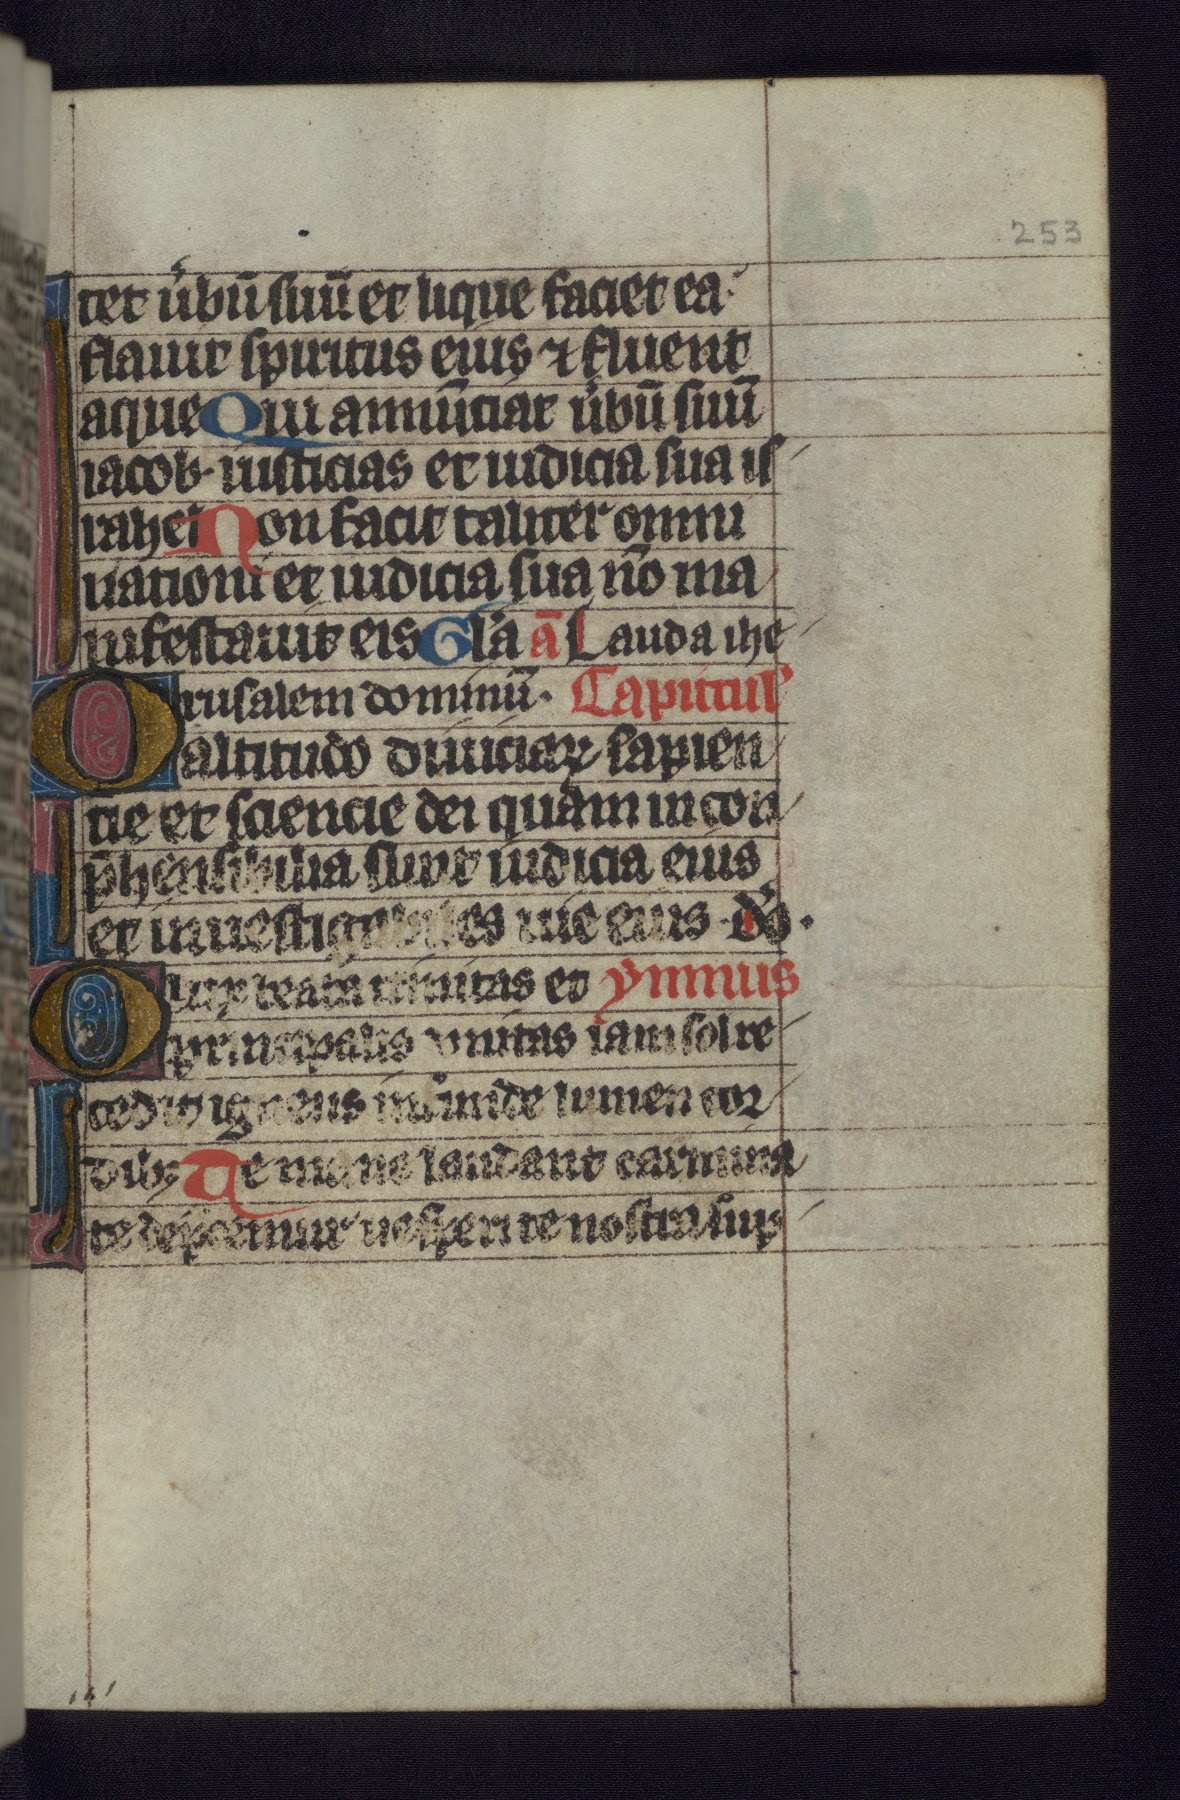 253
tet v̄bū suū et lique faciet ea
flauit spiritus eius ⁊ fluent
aque Qui annūciat v̄bū suū
iacob· iusticias et iudicia sua is
rahel Non facit taliter omni
nationi et iudicia sua nō ma
nifestauit eis Gl̄a ā Lauda ihe
rusalem dominū· Capitul'
O altitudo diuiciaꝝ sapien
cie et sciencie dei quam incon
p̄hensibilia sunt iudicia eius
et inuestigabiles uie eius · dō ·
O lux beata trinitas et ynmus
principalis vnitas iam sol re
cedit igneus infunde lumen cor
dibꝫ Te mane laudant carmina
te dep̄cemur uesperi te nostra sup